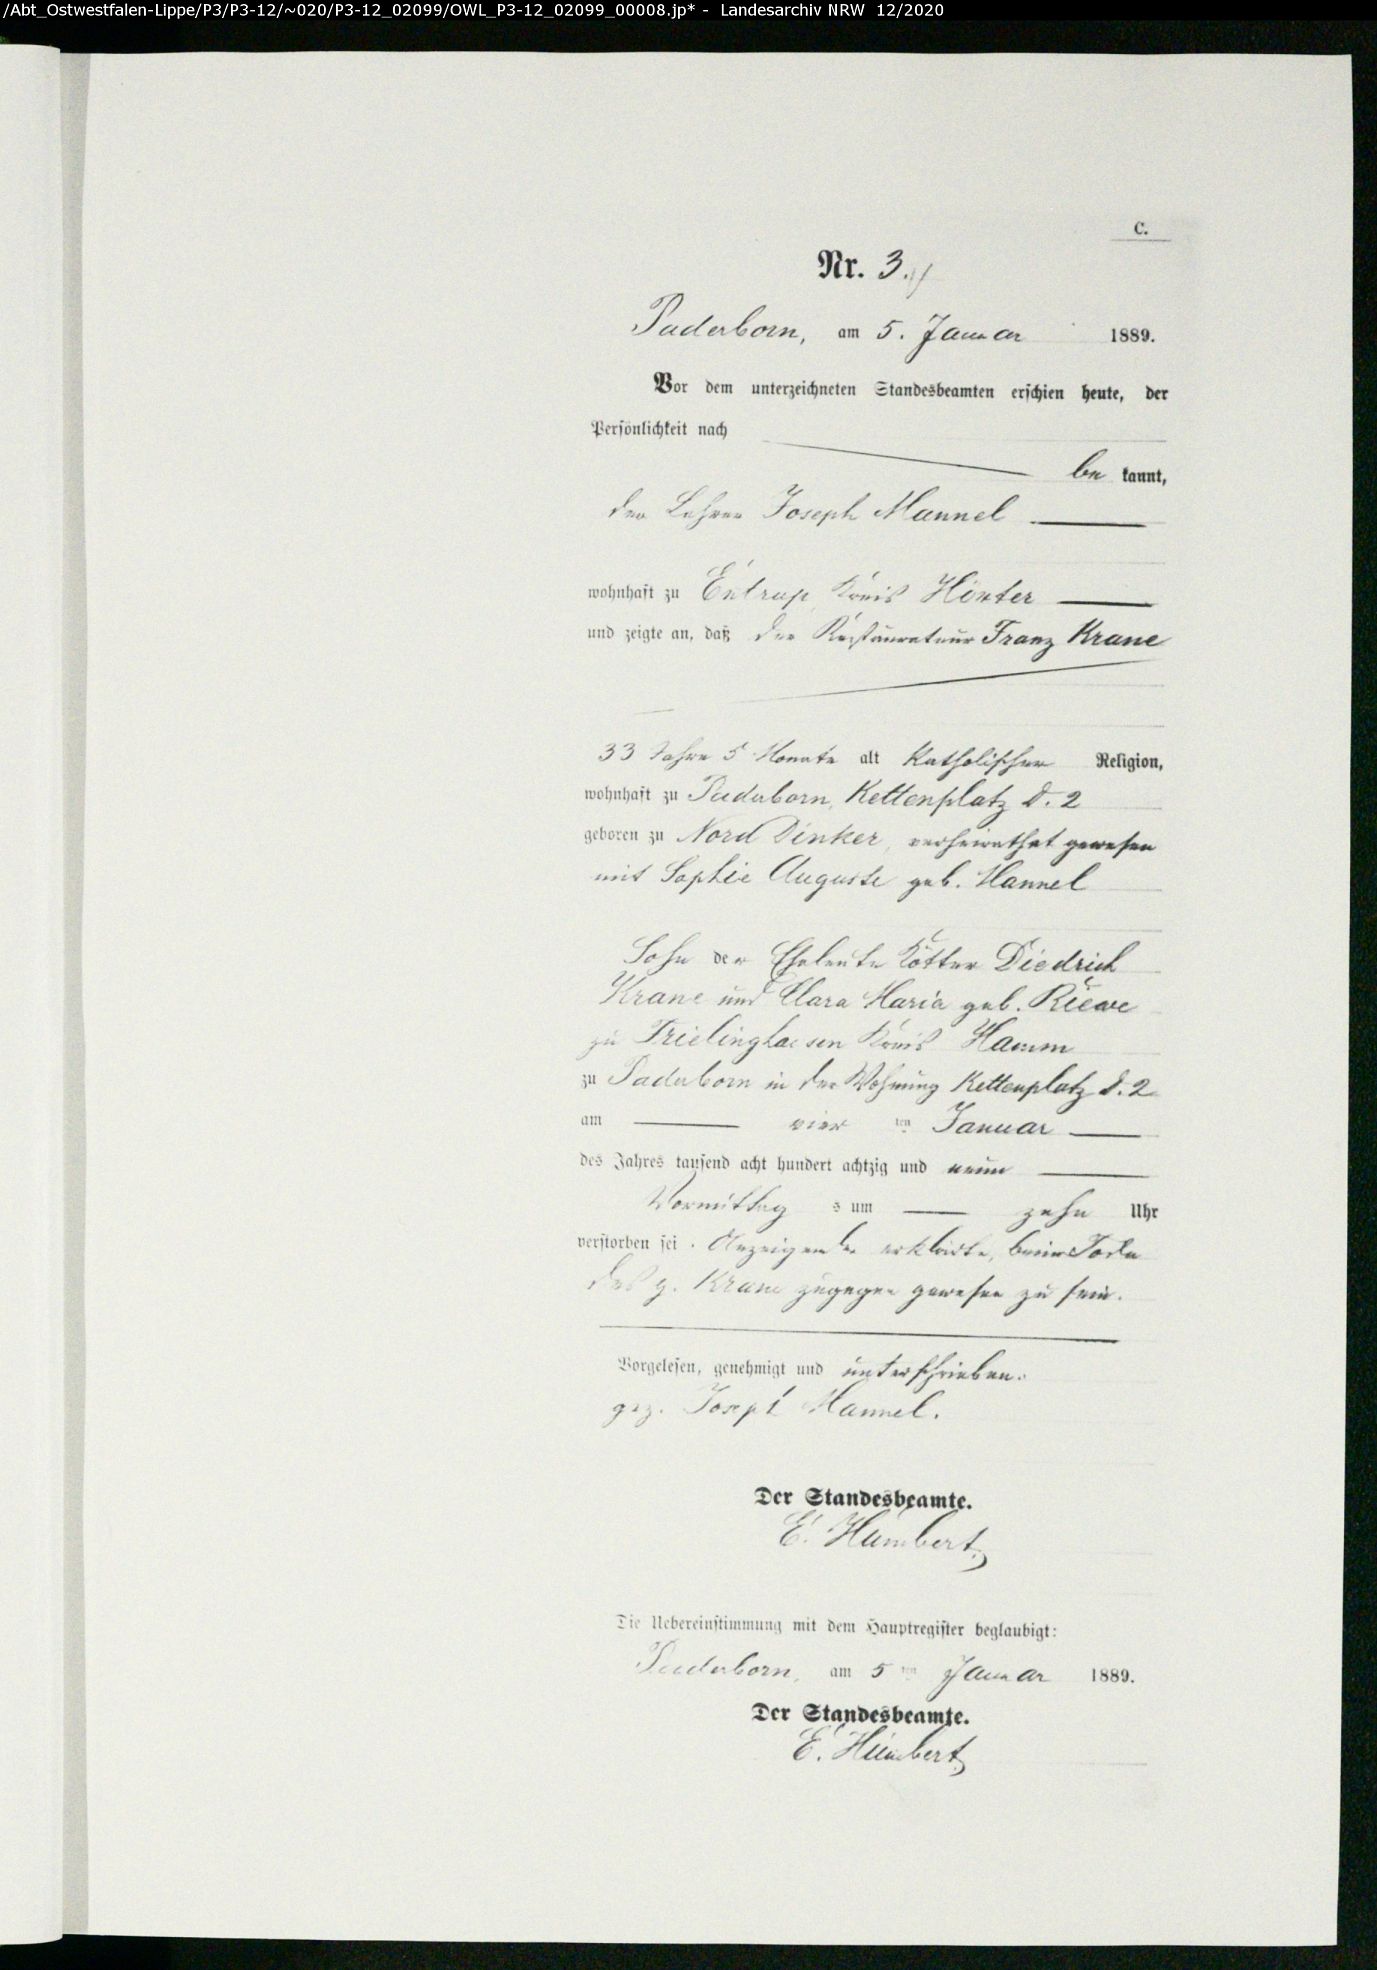 /Abt_Ostwestfalen-Lippe/P3/P3-12/~020/P3-12_02099/OWL_P3-12_02099_00008.jp* - Landesarchiv NRW 12/2020
C.
Nr. 3.
Paderborn, am 5. Januar 1889.
Vor dem unterzeichneten Standesbeamten erschien heute, der
Persönlichkeit nach
be kannt,
der Lehrer Joseph Mannel
wohnhaft zu Entrup, Kreis Höxter
und zeigte an, daß der Restaurateur Franz Krane
33 Jahre 5 Monate alt katholischer Religion,
wohnhaft zu Paderborn, Kettenplatz D. 2
geboren zu Nord Dinker, verheirathet gewesen
mit Sophie Auguste geb. Mannel
Sohn der Eheleute Kötter Diedrich
Krane und Clara Maria geb.
zu Kreis Hamm
zu Paderborn in der Wohnung Kettenplatz D. 2
am vier ten Januar
des Jahres tausend acht hundert achtzig und neun
Vormittag s um zehn Uhr
verstorben sei. Anzeigender erklärte, beim Tode
des p. Krane zugegen gewesen zu sein.
Vorgelesen, genehmigt und unterschrieben.
gez. Joseph Mannel.
Der Standesbeamte.
E. Humbert
Die Uebereinstimmung mit dem Hauptregister beglaubigt:
Paderborn, am 5 ten Januar 1889.
Der Standesbeamte.
E. Humbert